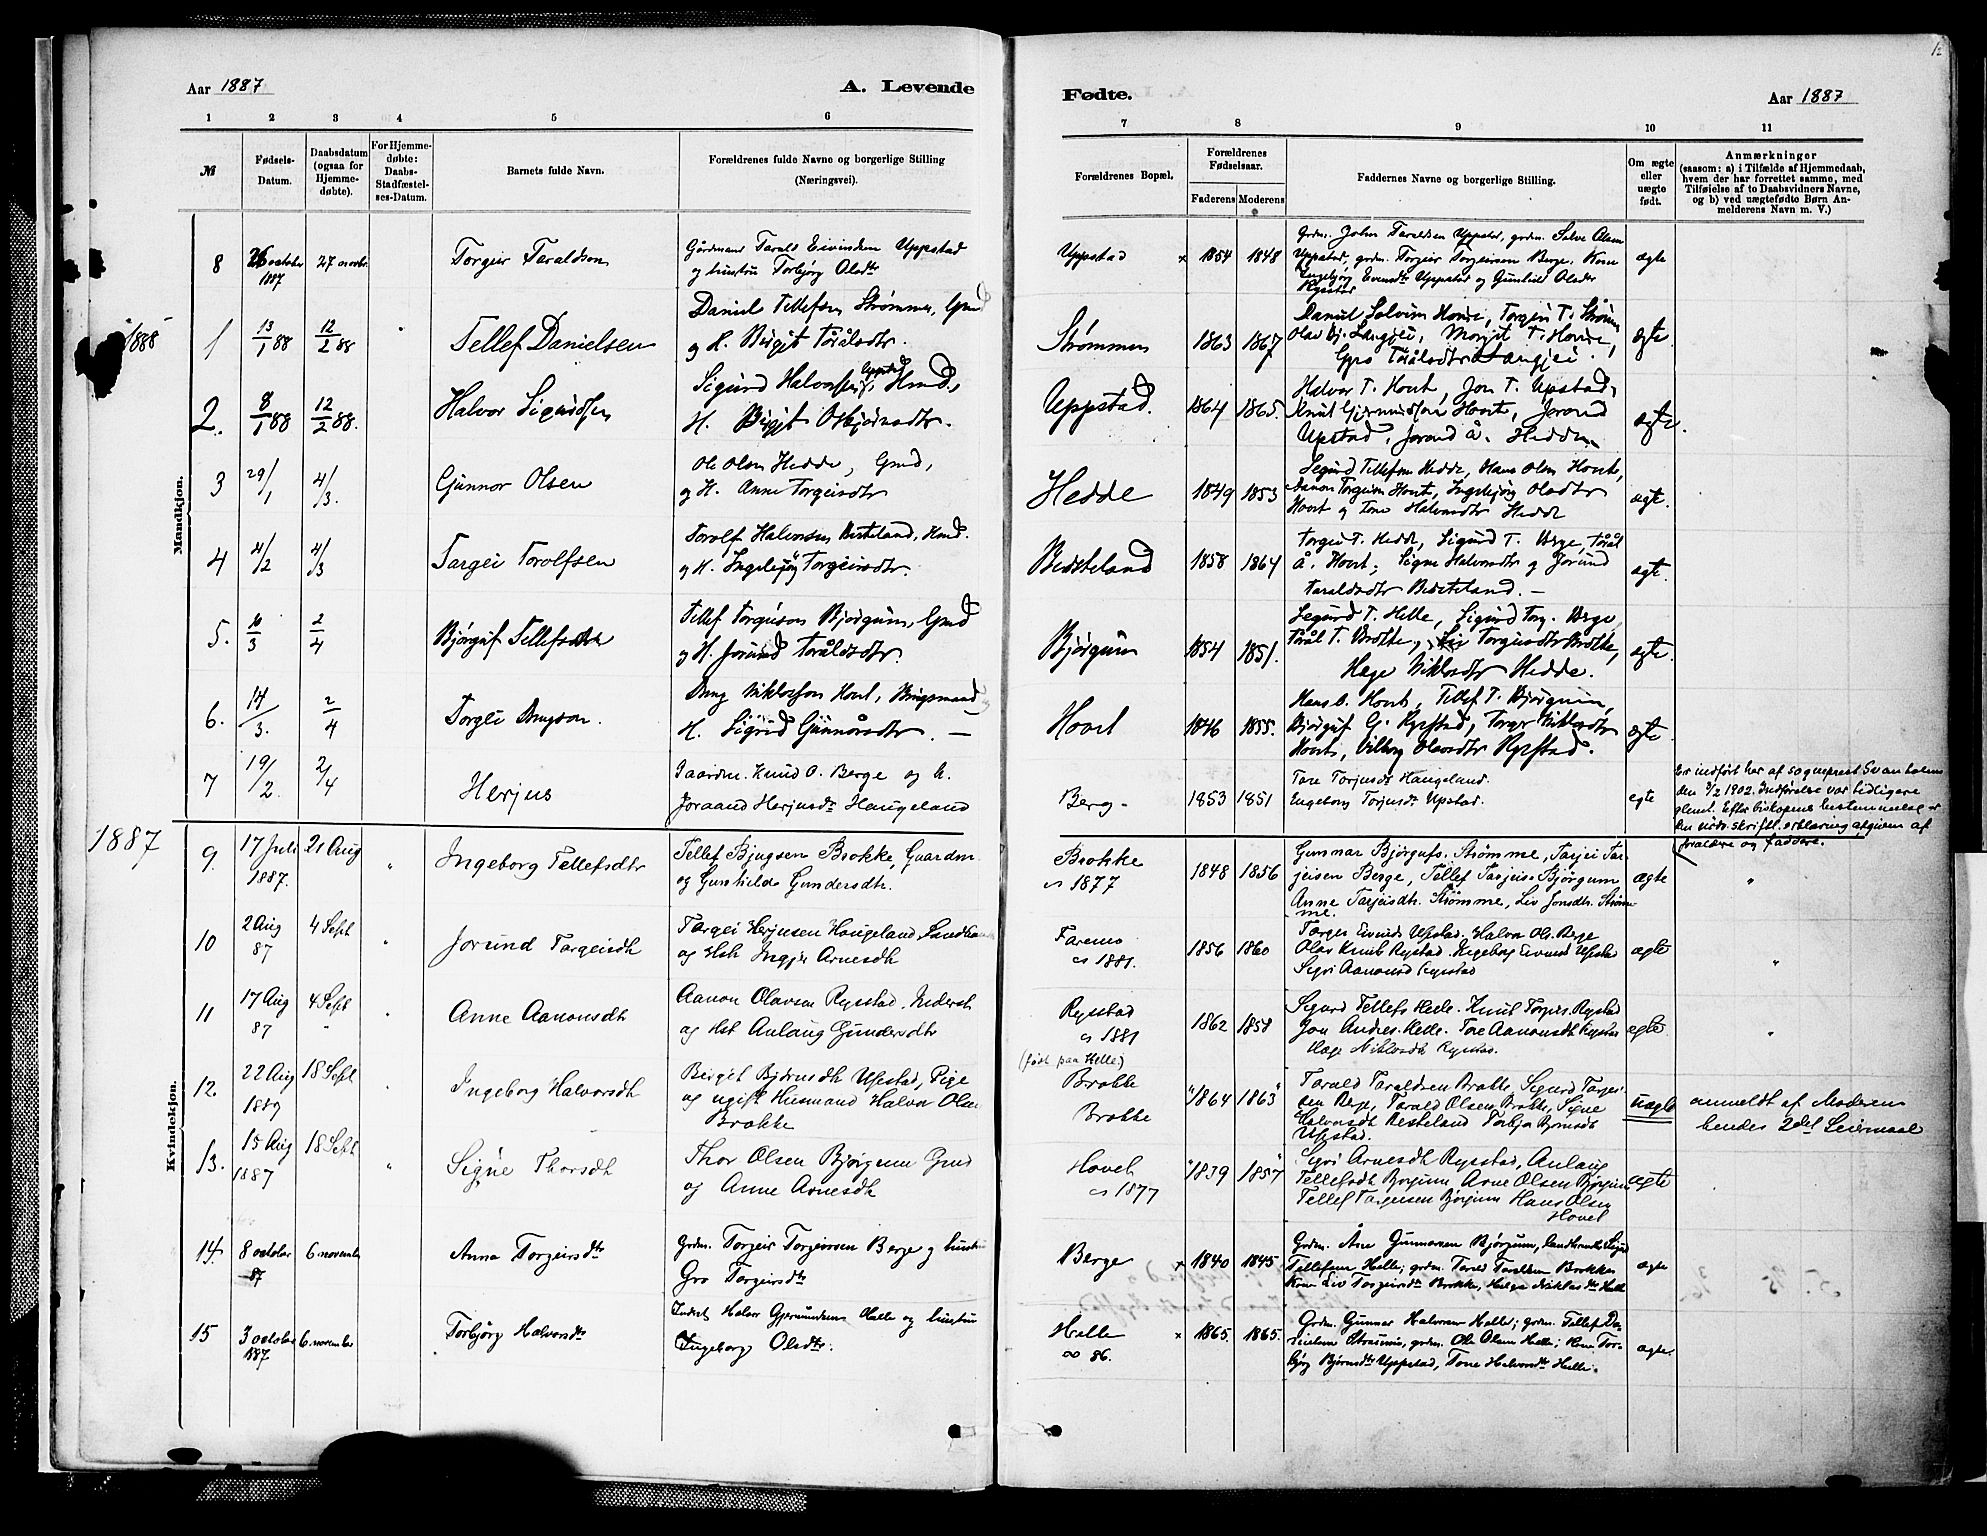 Aar 1887
A. Levende
Fødte.
Aar 1887
1 2 3 4 5 6
7 8 9 10 11
№
Fødsels-
Datum.
Daabsdatum
(ogsaa for
Hjemme-
døbte).
For Hjemme-
døbte:
Daabs-
Stadfæstel-
ses-Datum.
Barnets fulde Navn.
Forældrenes fulde Navne og borgerlige Stilling
(Næringsvei).
Forældrenes Bopæl.
Forældrenes
Fødselsaar.
Faderens Moderens
Faddernes Navne og borgerlige Stilling.
Om ægte
eller
uægte
født.
Anmærkninger
(saasom: a) i Tilfælde af Hjemmedaab,
hvem der har forrettet samme, med
Tilføielse af to Daabsvidners Navne,
og b) ved uægtefødte Børn An-
melderens Navn m. V.)
Mandkjøn.
8 26 october 1887 27 novbr. Torgeir Taraldsen
Gårdmand Tarald Eivindsen Uppstad
og hustru Torbjørg Olsdtr
Uppstad × 1854 1848
Grdm. John Taraldsen Uppstad, grdm. Salve Olsen
Uppstad, grdm. Torgeir Torgeirsen Berge, Kone
Ingebjørg Eivindsdtr Uppstad og Gunhild Olsdtr
Rysstad
ægte
1888
1 13/1 88 12/2 88 " Tellef Danielsen
Daniel Tellefsen Strømmen, Gmd
og H. Birgit Tåråldsdtr.
Strømmen 1863 1867
Daniel Salvesen Honte, Torgeir T. Strømm
Olav Bj. Langjei, Margit T. Honte,
Gyro Tåråldsdtr Langjei.
ægte
2. 8/1 88 12/2 88. Halvor Sigurdsen
Sigurd Halvorsen Uppstad, Hmd.,
H. Birgit Osbjørnsdtr.
Uppstad. 1864 1865.
Halvor T. Hovt, Jon T. Upstad,
Knut Gjermundsen Hovt, Jorand
Upstad, Jorand Å. Hedden
ægte.
3 29/1 4/3. Gunnar Olsen
Ole Olsen Hedde, Gmd,
og H. Anne Torgeirsdtr
Hedde 1849 1853
Sigurd Tellefsen Hedde, Hans Olsen Hovt,
Aanon Torgeirsen Hovt, Ingebjørg Olsdtr
Hovt og Tone Halvorsdtr Hedde
ægte.
4 4/2 4/3 Targei Torolfsen
Torolf Halvorsen Besteland, Hmd.
og H. Ingebjørg Torgeirsdtr.
Besteland 1858 1864
Torgei T. Hedde, Sigurd T. Berge, Tårål
Å. Hovt; Signe Halvorsdtr og Jorund
Taraldsdtr Besteland. —
ægte.
5. 6/3 2/4 Bjørguf Tellefsen
Tellef Torgeirsen Bjørgum, Gmd
og H. Jorund Tåråldsdtr.
Bjørgum 1854 1851.
Sigurd T. Helle, Sigurd Torg. Berge,
Tårål T. Brotte, Liv Torgeirsdtr Brotte,
Hæge Niklosdtr Hedde.
ægte.
6. 14/3. 2/4 Torgei Dugson.
Dug Niklosson Hovt, Bugsmand
H. Sigrid Gunnårsdtr. —
Hovt 1846 1855.
Hans O. Hovt, Tellef T. Bjørgum,
Bjørguf G. Rysstad, Torger Niklosdtr
Hovt, Vilborg Olavsdtr Rysstad.
ægte.
7 19/2. 2/4 Herjus
Gaardm. Knud O. Berge og h.
Joraand Herjusdr Haugeland
Berg- 1853 1851
Tore Torjusds Haugeland.
Engeborg Torjusdr Upstad.
egte
Er indført her af sogneprest Svanholm
den 3/2 1902. Indførelse var tidligere
glemt. Efter biskopens bestemmelse er
den nødv. skriftl. erklæring afgiven af
forældre og faddere.
Kvindekjøn.
1887
9. 17 Juli 1887. 21 Aug " Ingeborg Tellefsdtr
Tellef Bjugsen Brokke, Gaardm.
og Gunhild Gundersdtr.
Brokke
∞ 1877
1848 1856
Gunnar Bjørgufs. Strømme, Tarjei Tar-
jeisen Berge, Tellef Tarjeis. Bjørgum
Anne Tarjeisdtr. Strømme, Liv Jonsdtr. Strøm-
me.
ægte "
10 2 Aug 87 4 Sept " Jorund Targeisdtr
Targei Herjusen Haugeland
og Hst Ingjer Arnesdtr
Faremo
∞ 1881.
1856 1860
Torger Eivinds Upstad. Halvor Ol. Berge
Olav Knuts Rystad. Ingeborg Eivinds Upstad
Sigri Aanonsd Rysstad
ægte "
11 17 Aug 87 4 Sept " Anne Aanonsdtr
Aanon Olavsen Rysstad. Inderst
og Hst Anlaug Gundersdtr
Rysstad
∞ 1881
(født paa Helle)
1862 1858
Sigurd Tellefs Helle. Knut Torgers Rystad
Jon Andres. Helle. Tore Aanonsdt Rysstad
Hæge Niklosdt Rysstad.
ægte "
12. 22 Aug 1887 18 Sept Ingeborg Halvorsdtr
Birgit Bjørnsdtr Upstad, Pige
og ugift Husmand Halvor Olsen
Brokke
Brokke
Brokke
"1864 1863"
Tarald Taraldsen Brokke Sigurd Targei-
sen Berge, Tarald Olsen Brokke, Signe
Halvorsdt Besteland Torbjør Bjørnsdt
Upstad.
uægte
anmeldt af Moderen
hendes 2det Leiermaal
13. 15 Aug 1887 18 Sept " Signe Thorsdtr
Thor Olsen Bjørgum Gmd
og Anne Arnesdtr
Hovet
∞ 1877
"1839 1857"
Sigri Arnesdtr Rysstad, Anlaug
Tellefsdt Bjørgum Arne Olsen Bjørgum
Tellef Targeisen Bjørgum Hans Olsen
Hovet
ægte
14. 8 october 87 6 november Anna Torgeirsdtr
Grdm. Torgeir Torgeirsen Berge og hustru
Gro Torgeirsdtr
Berge × 1840 1845
Grdm. Åne Gunnarsen Bjørgum, landhandler Sigurd
Tellefsen Helle; grdm. Tarald Taraldsen Brokke
Kone Liv Torgeirsdtr Brokke, Helga Niklosdtr Helle
ægte
15 3 october 1887 6. november Torbjørg Halvorsdtr
Inderst Halvor Gjermundsen Helle og hustru
Ingeborg Olsdtr.
Helle
∞ 86.
× 1865. 1865.
Grdm. Gunnar Halvorsen Helle; grdm. Tellef Da-
nielsen Straume, grdm. Ole Olsen Helle; Kone Tor-
bjørg Bjørnsdtr Uppstad, Tone Halvorsdtr Helle.
ægte.